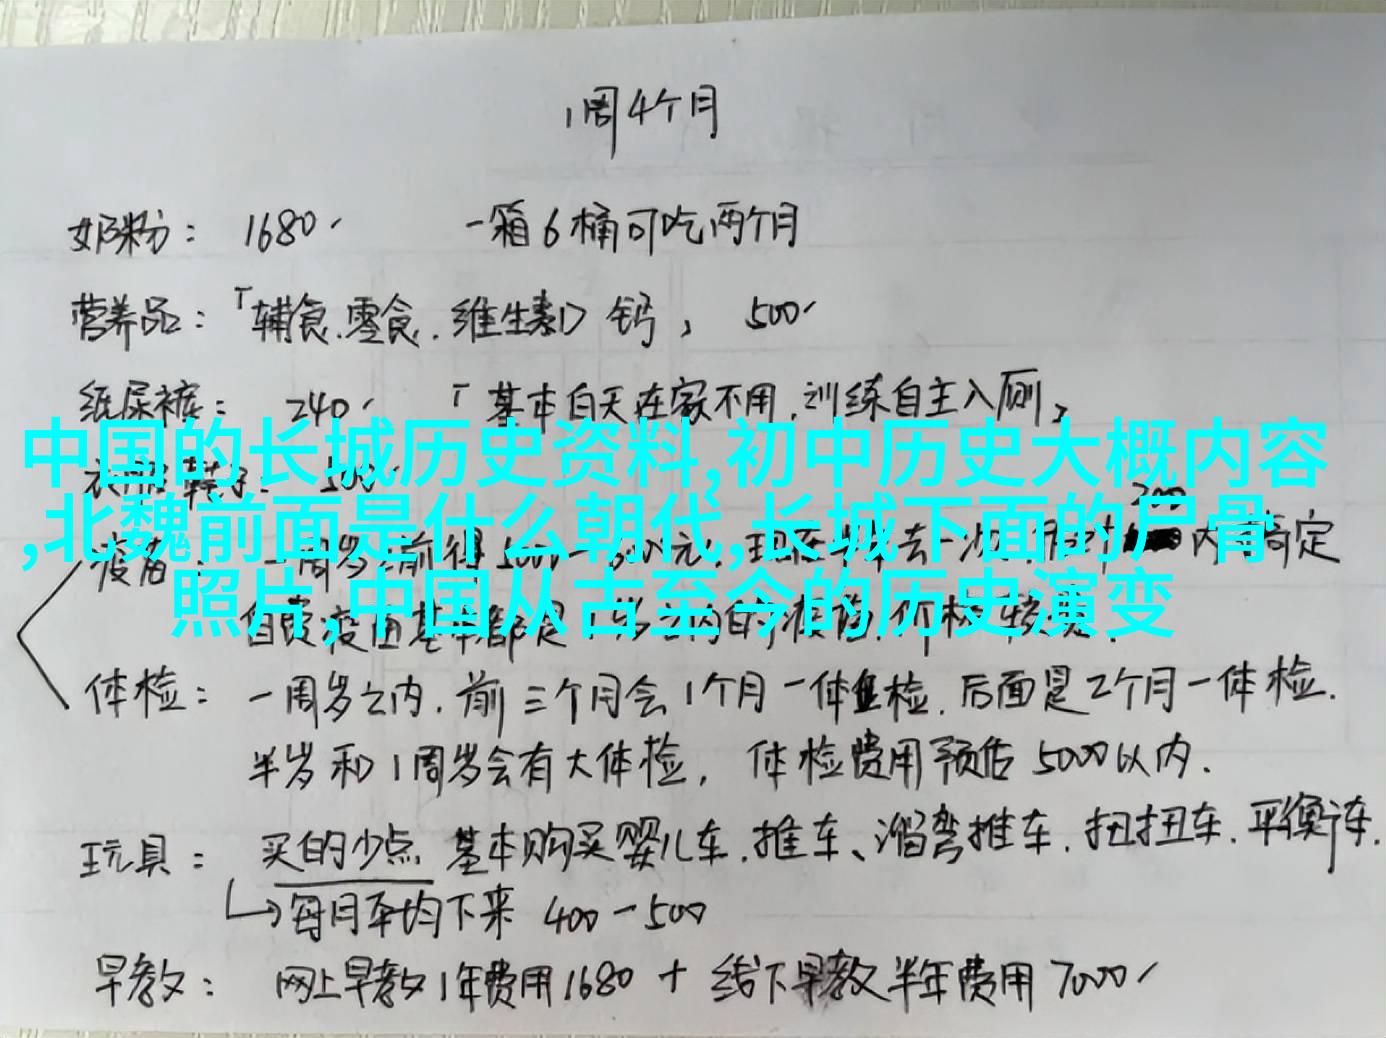 1周4个月
奶粉： 1680 一箱6桶可吃两个月
营养品：「辅食.零食.维生素D 钙， 500
纸尿裤： 240 「基本白天在家不用,训练自主入厕,
中国的长城历史资料,初中历史大概内容
,北魏前面是什么朝代,长城下面的尸骨
照片,中国从古至今的历史演变
体检： 一周岁之内.前三个月会1个月一体检.后面是2个月一体检.
半岁和1周岁会有大体检, 体检费用预估5000以内.
玩具： 买的少点 基本购买婴儿车.推车、溜弯推车.扭扭车.平衡车.
每月平均下来 400-500
早教： 网上早教1年费用1680 + 线下早教半年费用7000